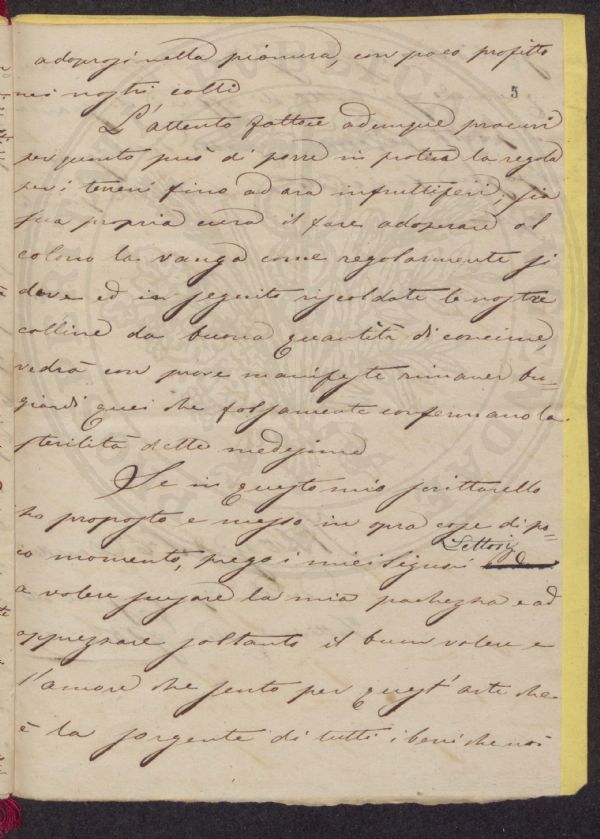 adoprosi nella pianura, con poco profitto
5
nei nostri colli
L'attento fattore adunque procuri
per quanto può di porre in pratica la regola
per i terreni fino ad ora infruttiferi; sia
sua propria cura il fare adoperare al
colono la vanga come regolarmente si
deve ed in seguito riscaldate le nostre
colline da buona quantità di concime,
vedrà con prove manifeste rimaner bu-
giardi quei che falsamente confermano la
sterilità delle medesime
Se in questo mio scrittarello
ho proposto e messo in opra cose di po-
Lettori
co momento, prego i miei Signori
a volere scusare la mia pochezza e ad
apprezzare soltanto il buon volere e
l'amore che sento per quest'arte che
è la sorgente di tutti i beni che noi